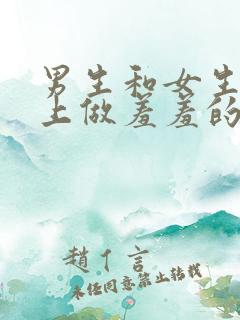 男生和女生
上做羞羞的
趙丫言
未经同意禁止转载